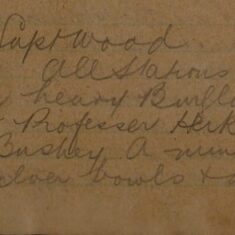 Capt Wood.
All Stations
heavy Burgla
Professer Herk
Bushey A num
bowls &